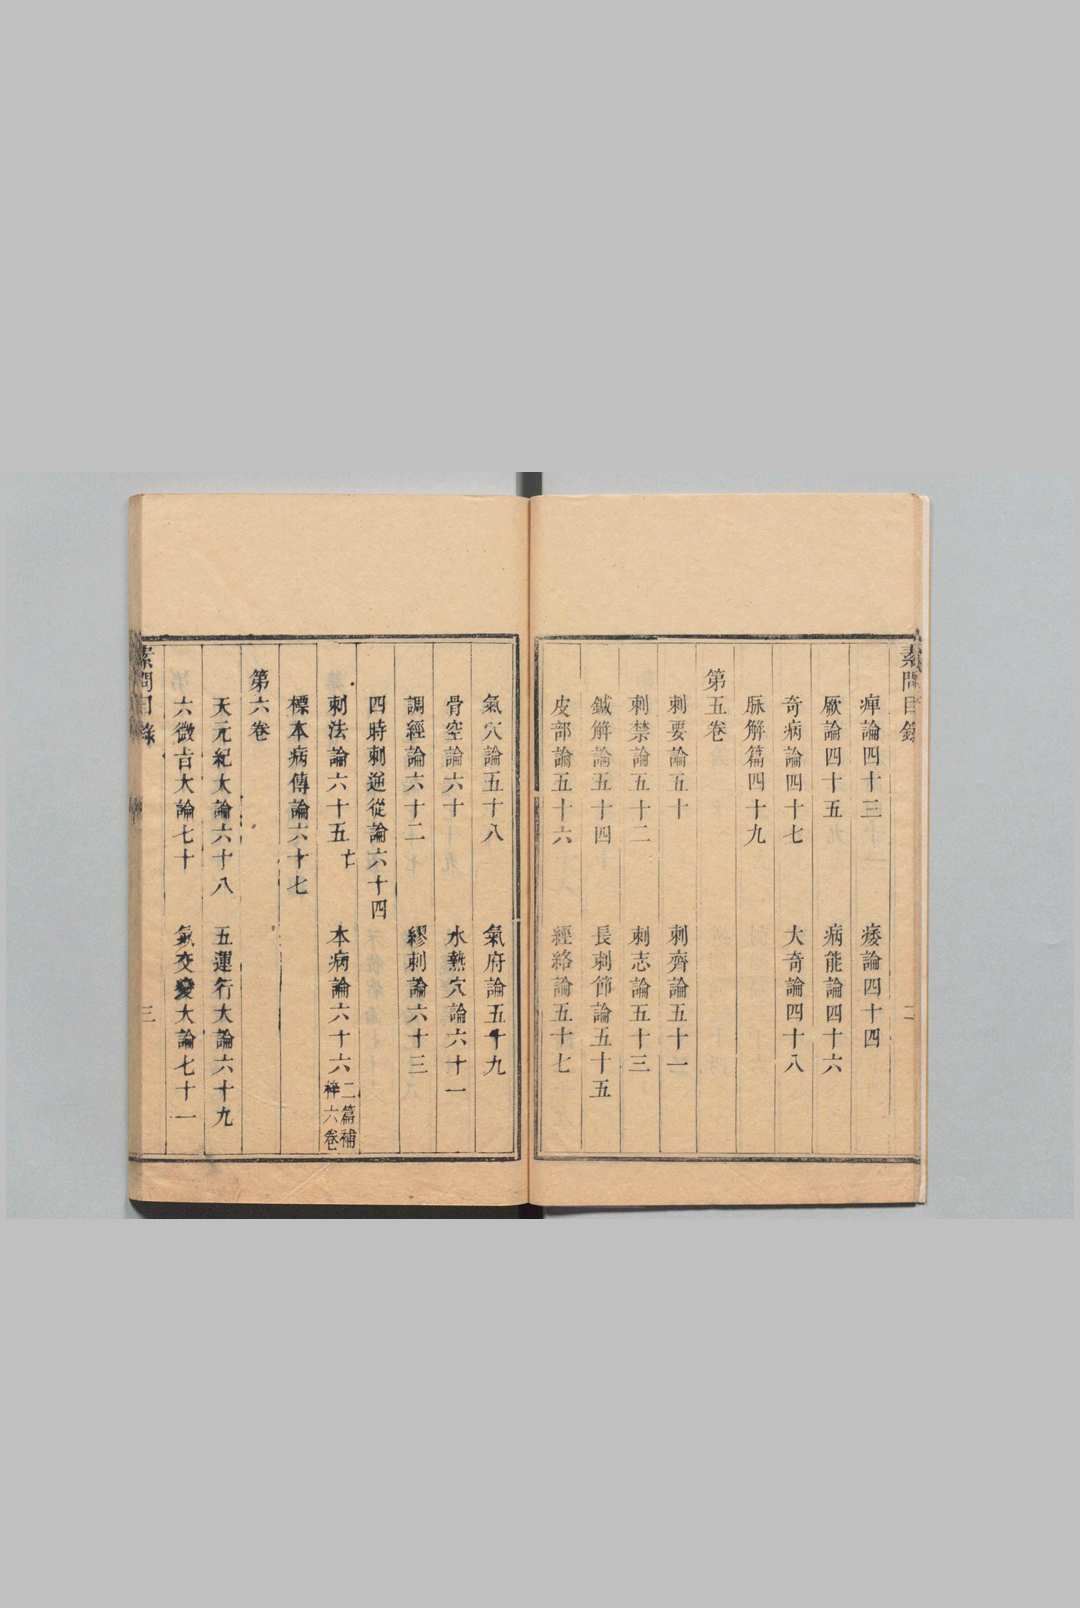 素問目錄
二
痺論四十三 痿論四十四
厥論四十五 病能論四十六
奇病論四十七 大奇論四十八
脉解篇四十九
第五卷
刺要論五十 刺齊論五十一
刺禁論五十二 刺志論五十三
鍼解論五十四 長刺節論五十五
皮部論五十六 經絡論五十七
氣穴論五十八 氣府論五十九
骨空論六十 水熱穴論六十一
調經論六十二 繆刺論六十三
四時刺逆從論六十四
刺法論六十五亡 本病論六十六 二篇補
六卷
標本病傳論六十七
第六卷
天元紀大論六十八 五運行大論六十九
六微㫖大論七十 氣交變大論七十一
素問目錄
三